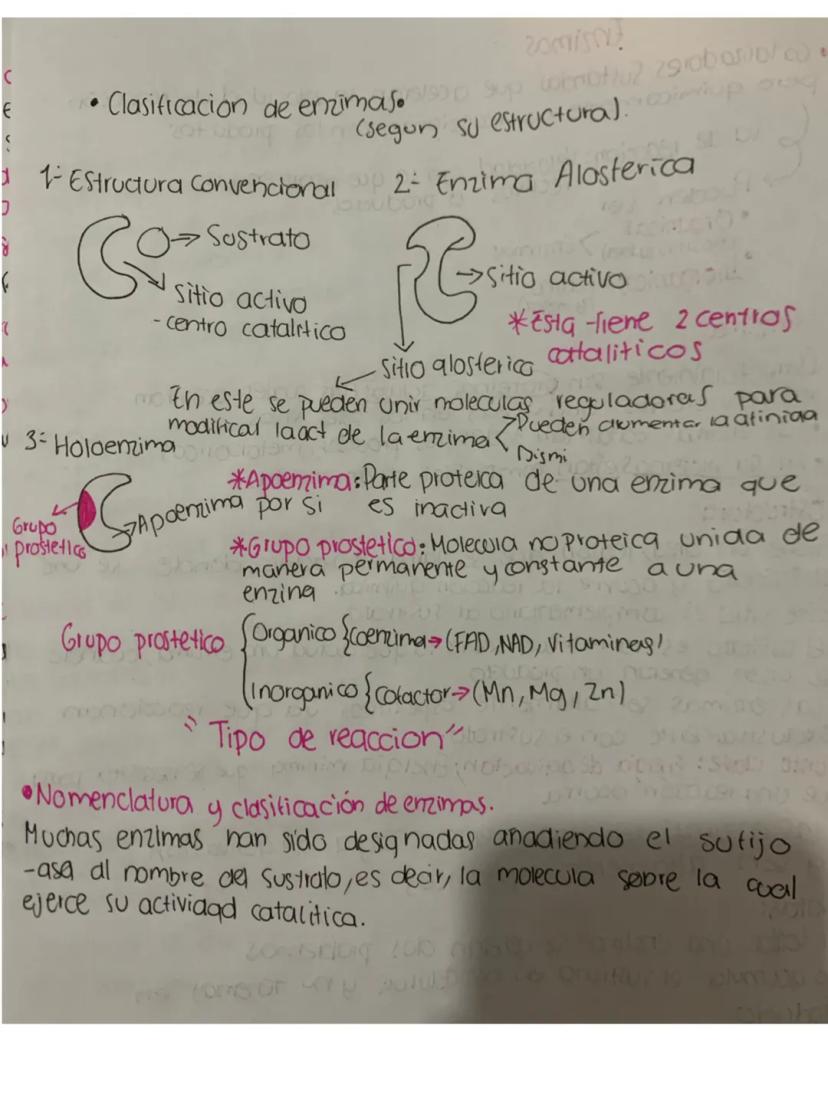 • Clasificación de enzimas.
(segun su estructura).
1- Estructura convencional
2- Enzima Alosterica
→ Sustrato
Sitio activo
- centro catalitico
→ Sitio activo
*Esta tiene 2 centros
cataliticos
sitio alosterico
En este se pueden unir moleculas reguladoras para
modificar la act de la enzima < Pueden aumentar la afinida
Dismi
3- Holoenzima
Grupo
prostetico
→ Apoenzima
*Apoenzima: Parte proteica de una enzima que
por si es inactiva
*Grupo prostetico: Molecula no proteica unida de
manera permanente y constante a una
enzina
Grupo prostetico { Organico { coenzima → (FAD, NAD, Vitaminas)
Inorganico { cofactor → (Mn, Mg, Zn)
" Tipo de reaccion "
• Nomenclatura y clasificación de enzimas.
Muchas enzimas han sido designadas añadiendo el sufijo
-asa al nombre del sustrato, es decir, la molecula sobre la cual
ejerce su actividad catalitica.